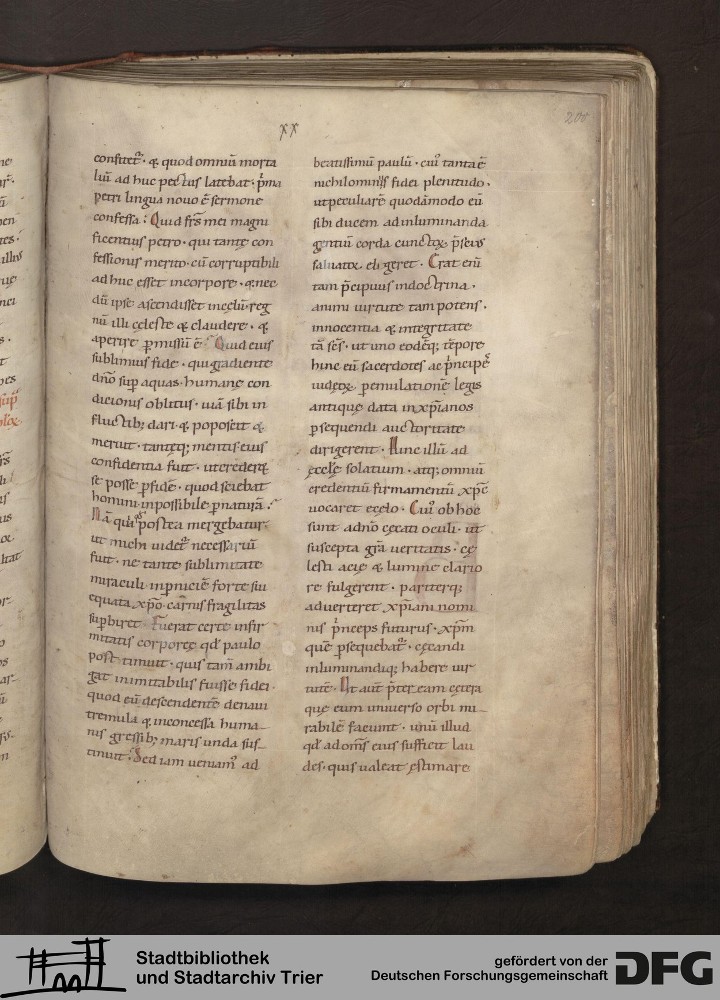 xx
200
confitet᷑ · & quod omniū morta
liū ad huc pectus latebat · p̍ma
petri lingua nouo ē sermone
confessa : Quid fr̄s mei magni
ficentius petro · qui tantę con
fessionis merito · cū corruptibili
ad huc esset in corpore · & nec
dū ipse ascendisset in cęlū · reg
nū illi cęleste & claudere · &
aperire p̱missū ē · Quid eius
sublimius fide · qui gradiente
dn̄o sup̱ aquas · humanę con
dicionis oblitus · uiā sibi in
fluctib; dari · & poposcit &
meruit · tantęq; mentis eius
confidentia fuit · ut crederet
se posse p̱ fidē · quod sciebat
homini inpossibile p̱ naturā :
Nā qui postea mergebatur
ut michi uidet᷑ necessariū
fuit · ne tantę sublimitate
miraculi in p̱niciē forte sui
equata xp̄o carnis fragilitas
sup̱biret · Fuerat certe infir
mitatis corporeę qd̄ paulo
post timuit · quis tam̄ ambi
gat inimitabilis fuisse fidei ·
quod eū descendentē de naui
tremula & inconcessa huma-
nis gressib; maris unda sus-
tinuit · Sed iam ueniam᷒ ad
beatissimū paulū · cui᷒ tanta ē
nichilominus fidei plenitudo ·
ut peculiarē quodāmodo eū
sibi ducem ad inluminanda
gentiū corda cunctoꝝ p̱scius
saluatoꝝ eligeret · Erat eni
tam p̄cipuus in doctrina ·
animi uirtute tam potens ·
innocentia & integritate
tā sc̄s · ut uno eodēq; tēpore
hinc eū sacerdotes ac p̍ncipes
iudęoꝝ p̱ emulationē legis
antiquę data in xp̄ianos
p̱sequendi auctoritate
dirigerent · Hinc illū ad
ęcclę solatium · atq; omniū
credentiū firmamentū xp̄c
uocaret e cęlo · Cui᷒ ob hoc
sunt ad n̄o cęcati oculi · ut
suscepta gr̄a ueritatis · cę
lesti acie & lumine clario
re fulgerent · pariterq;
aduerteret xp̄iani nomi
nis p̍nceps futurus · xp̄m
quē p̱sequebat᷑ · cęcandi
inluminandiq; habere uir
tutē · At aut̄ p̄ter eam cętera
quę eum uniuerso orbi mi-
rabilē faciunt · unū illud
qd̄ ad om̄s eius sufficit lau
des · quis ualeat ęstimare
Stadtbibliothek
und Stadtarchiv Trier
gefördert von der
Deutschen Forschungsgemeinschaft
DFG